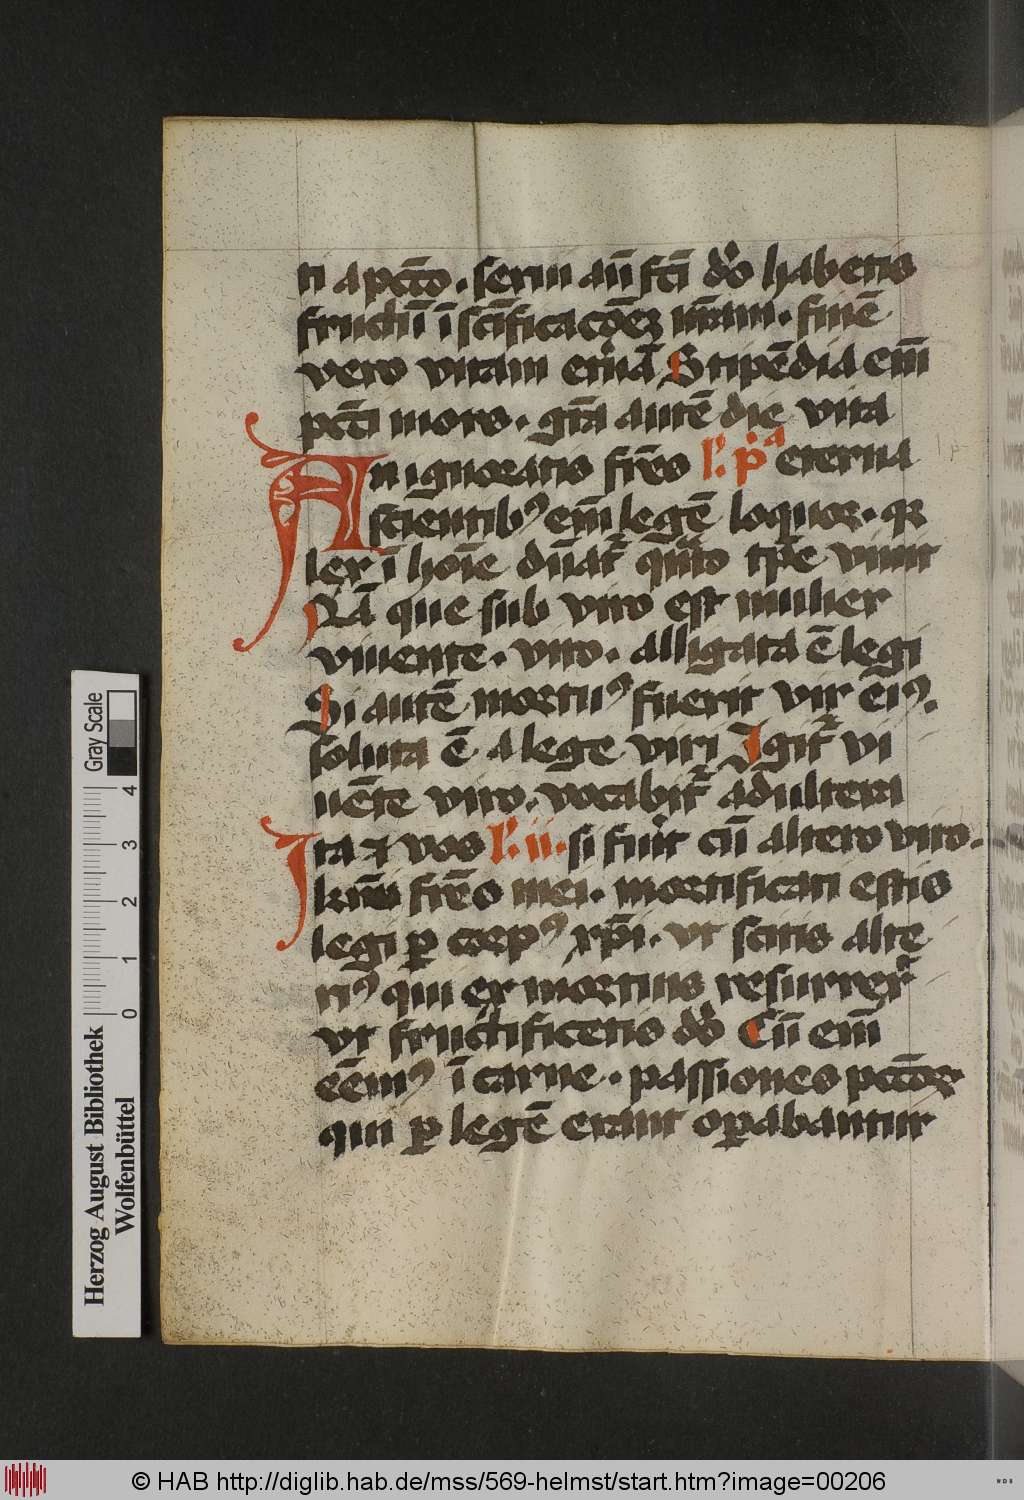 ti a pctō. serui aūt fcī dō habetis
fructū ī scīficacōez urām. finē
vero vitam etnā Stipēdia enī
pctī mors. grā autē die vita
An ignoratis fres l. p.a eterna
scientib9 enī legē loquor. qr
lex ī hoīe dnatr qnto tpe viuit
Nā que sub viro est mulier
viuente. viro. alligata ē legi
Si autē mortu9 fuerit vir ei9.
soluta ē a lege viri Igitr vi
uēte viro. vocabitr adultera
Ita et vos l. ii. si fuit cū altero viro.
fres mei. mortificati estis
legi p corp9 xpī. vt scitis alte
ri9 qui ex mortuis resurrexr
vt fructificetis dō Cū enī
eēm9 ī carne. passiones pctōr
qui p legē erant opabantur
Herzog August Bibliothek
Wolfenbüttel
0 1 2 3 4
Gray Scale
© HAB http://diglib.hab.de/mss/569-helmst/start.htm?image=00206